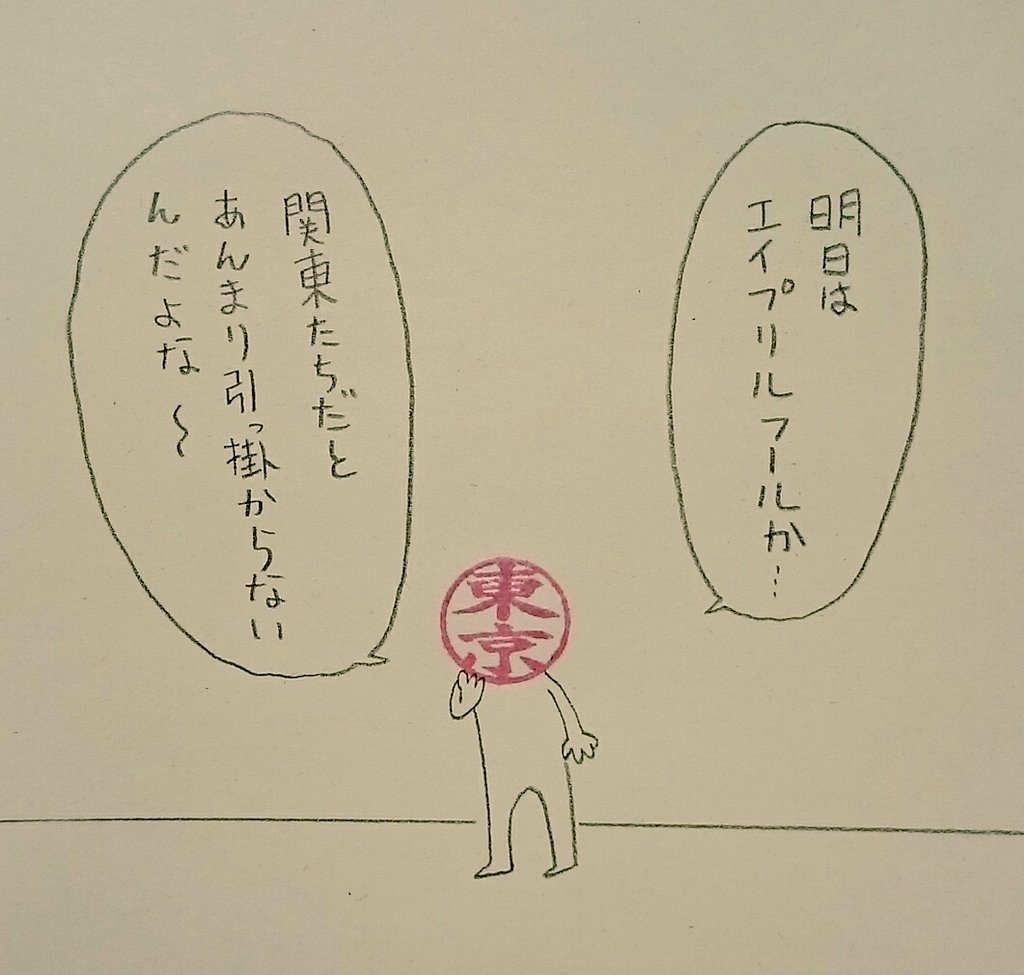 明日は
エイプリルフールか…
関東たちだと
あんまり引っ掛からない
んだよな〜
東京